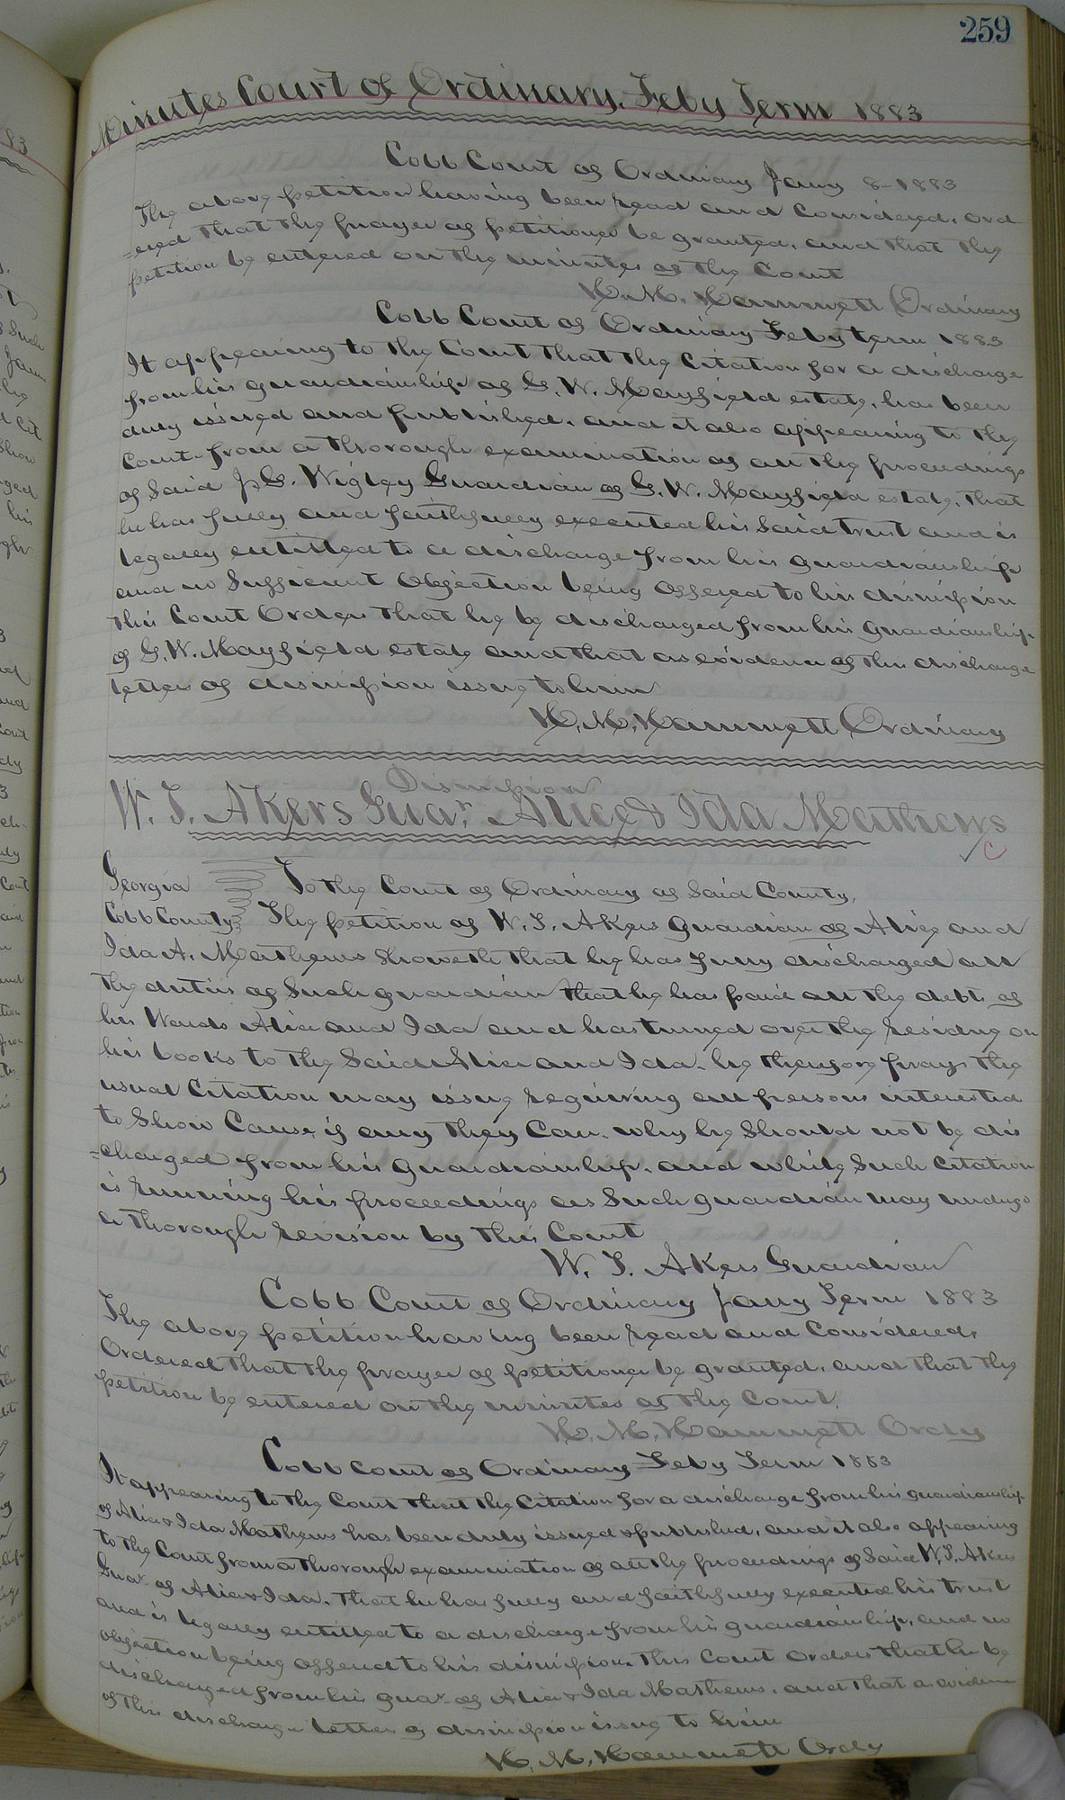 259
Minutes Court of Ordinary, Feby Term 1883
Cobb Court of Ordinary Jany 8-1883
The above petition having been read and Considered, ord
=ered that the prayer of petitioner be granted, and that the
petition be entered on the minutes of the Court
H. M. Hammett Ordinary
Cobb Court of Ordinary Feby term 1883
It appearing to the Court that the Citation for a discharge
from his guardianship of G. W. Mayfield estate, has been
duly issued and published, and it also appearing to the
Court from a thorough examination of all the proceedings
of Said J. G. Wigley Guardian of G. W. Mayfield estate, that
he has fully and faithfully executed his Said trust and is
legally entitled to a discharge from his guardianship
and no Sufficient Objection being offered to his dismission
this Court Orders that he be discharged from his guardianship
of G. W. Mayfield estate and that as evidence of this discharge
letter of dismission issue to him
H. M. Hammett Ordinary
Dismission
W. T. Akers Guar. Alice & Ida Mathews
Georgia To the Court of Ordinary of Said County,
Cobb County The petition of W. T. Akers guardian of Alice and
Ida A. Mathews Showeth that he has fully discharged all
the duties of Such guardian that he has paid all the debts of
his Wards Alice and Ida and has turned over the residue on
his books to the Said Alice and Ida. he therefore prays the
usual Citation may issue requiring all persons interested
to Show Cause, if any they Can, why he Should not be dis
=charged from his guardianship, and while Such Citation
is running his proceedings as Such guardian may undergo
a thorough revision by this Court
W. T. Akers Guardian
Cobb Court of Ordinary Jany Term 1883
The above petition having been read and Considered,
Ordered that the prayer of petitioner be granted, and that the
petition be entered on the minutes of the Court.
H. M. Hammett Ordy
Cobb Court of Ordinary Feby Term 1883
It appearing to the Court that the Citation for a discharge from his guardianship
of Alice & Ida Mathews has been duly issued & published, and it also appearing
to the Court from a thorough examination of all the proceedings of Said W. T. Akers
Guar. of Alice & Ida. that he has fully and faithfully executed his trust
and is legally entitled to a discharge from his guardianship, and no
objection being offered to his dismission. this Court Orders that he be
discharged from his guar. of Alice & Ida Mathews, and that as evidence
of this discharge letter of dismission issue to him
H. M. Hammett Ordy